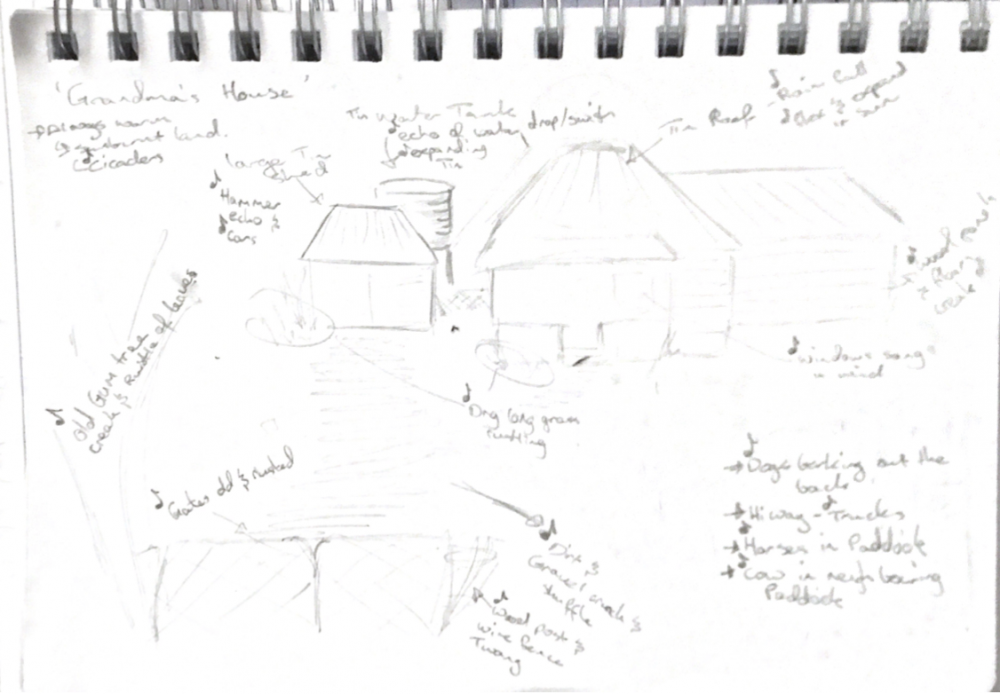 'Grandma's House'
→ Always warm
↳ sunburnt land.
↳ cicaders
Tin Water Tank
echo of water drop/
expanding
Tin
Tin Roof - Rain
& expand
in sun
Large Tin
Shed
Hammer
echo &
Cars
Old Gum tree
creak & Rustle of leaves
wood
& floring
creak
windows song
in wind
Dry long grass
Gates old & rusted
→ Dogs barking out the
back
→ Hiway - Trucks
→ Horses in Paddock
→ Cow in neighbouring
Paddock
Dirt &
Gravel &
shuffle
wood post &
wire fence
Twang